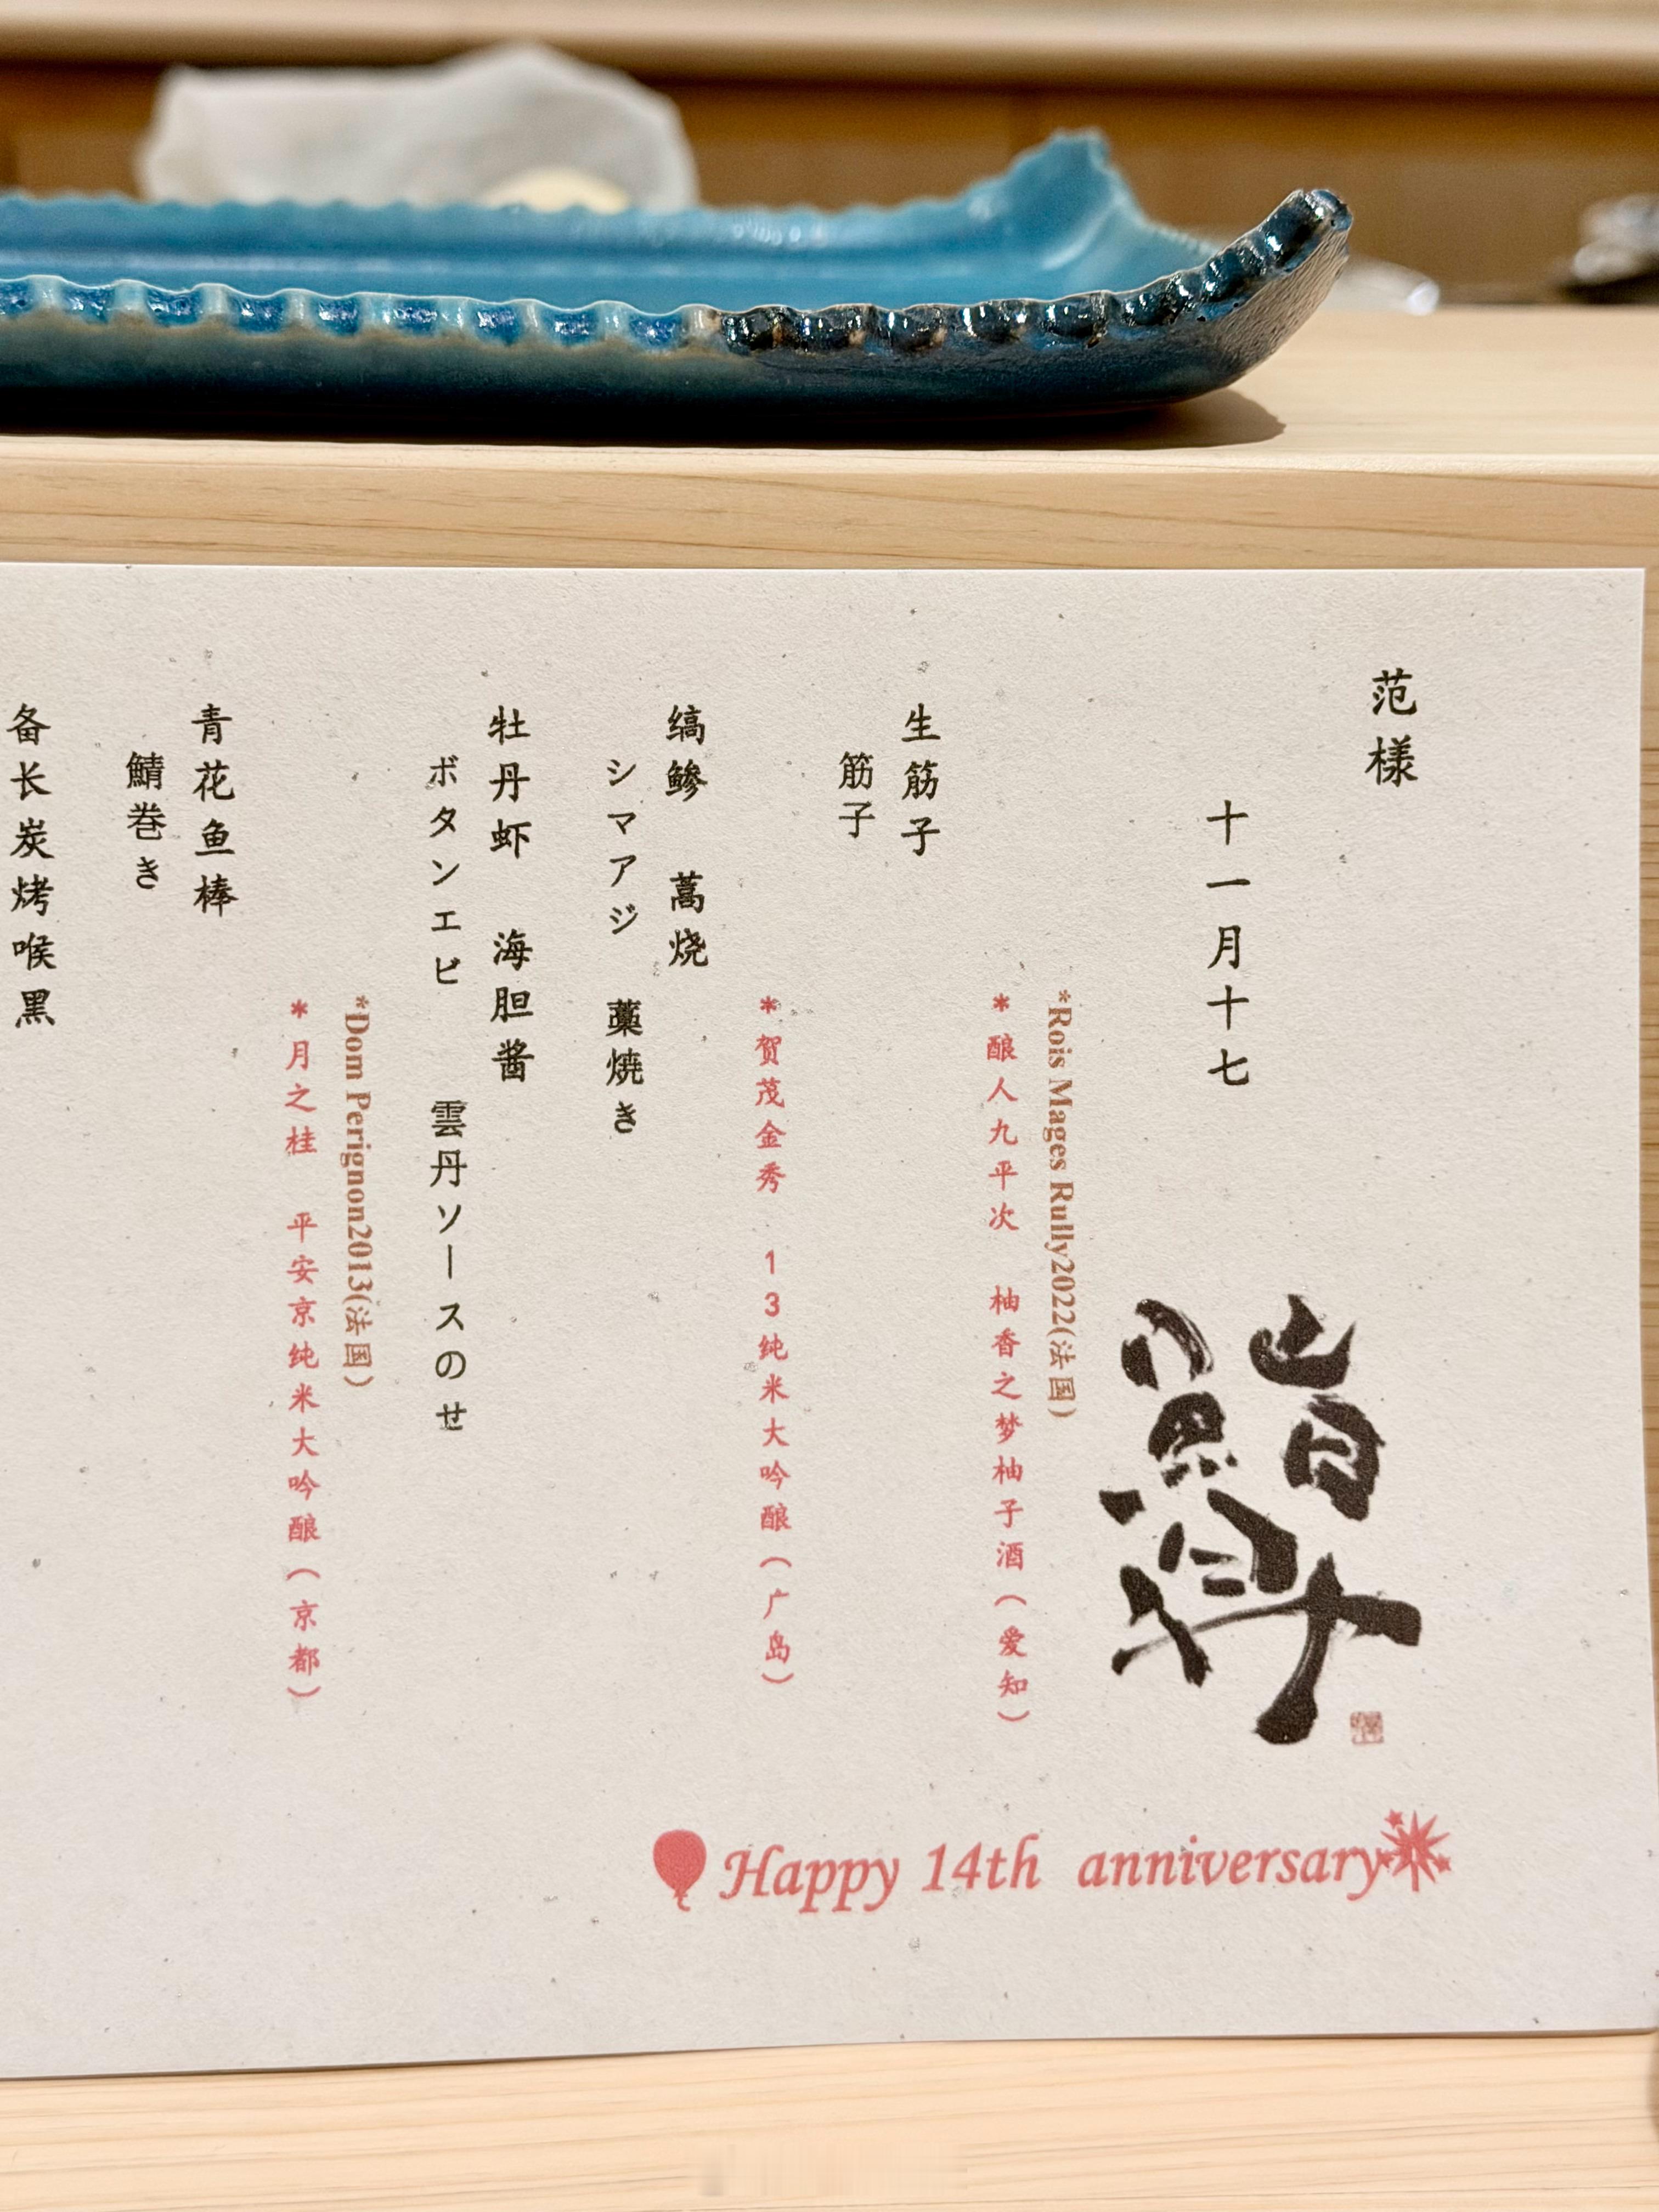 范様
十一月十七
*Rois Mages Rully2022(法国)
*酿人九平次 柚香之梦柚子酒(爱知)
生筋子
筋子
*贺茂金秀 13纯米大吟酿(广岛)
缟鲹 蒿烧
シマアジ 藁焼き
牡丹虾 海胆酱
ボタンエビ 雲丹ソースのせ
*Dom Perignon2013(法国)
*月之桂 平安京纯米大吟酿(京都)
青花鱼棒
鯖巻き
备长炭烤喉黑
Happy 14th anniversary